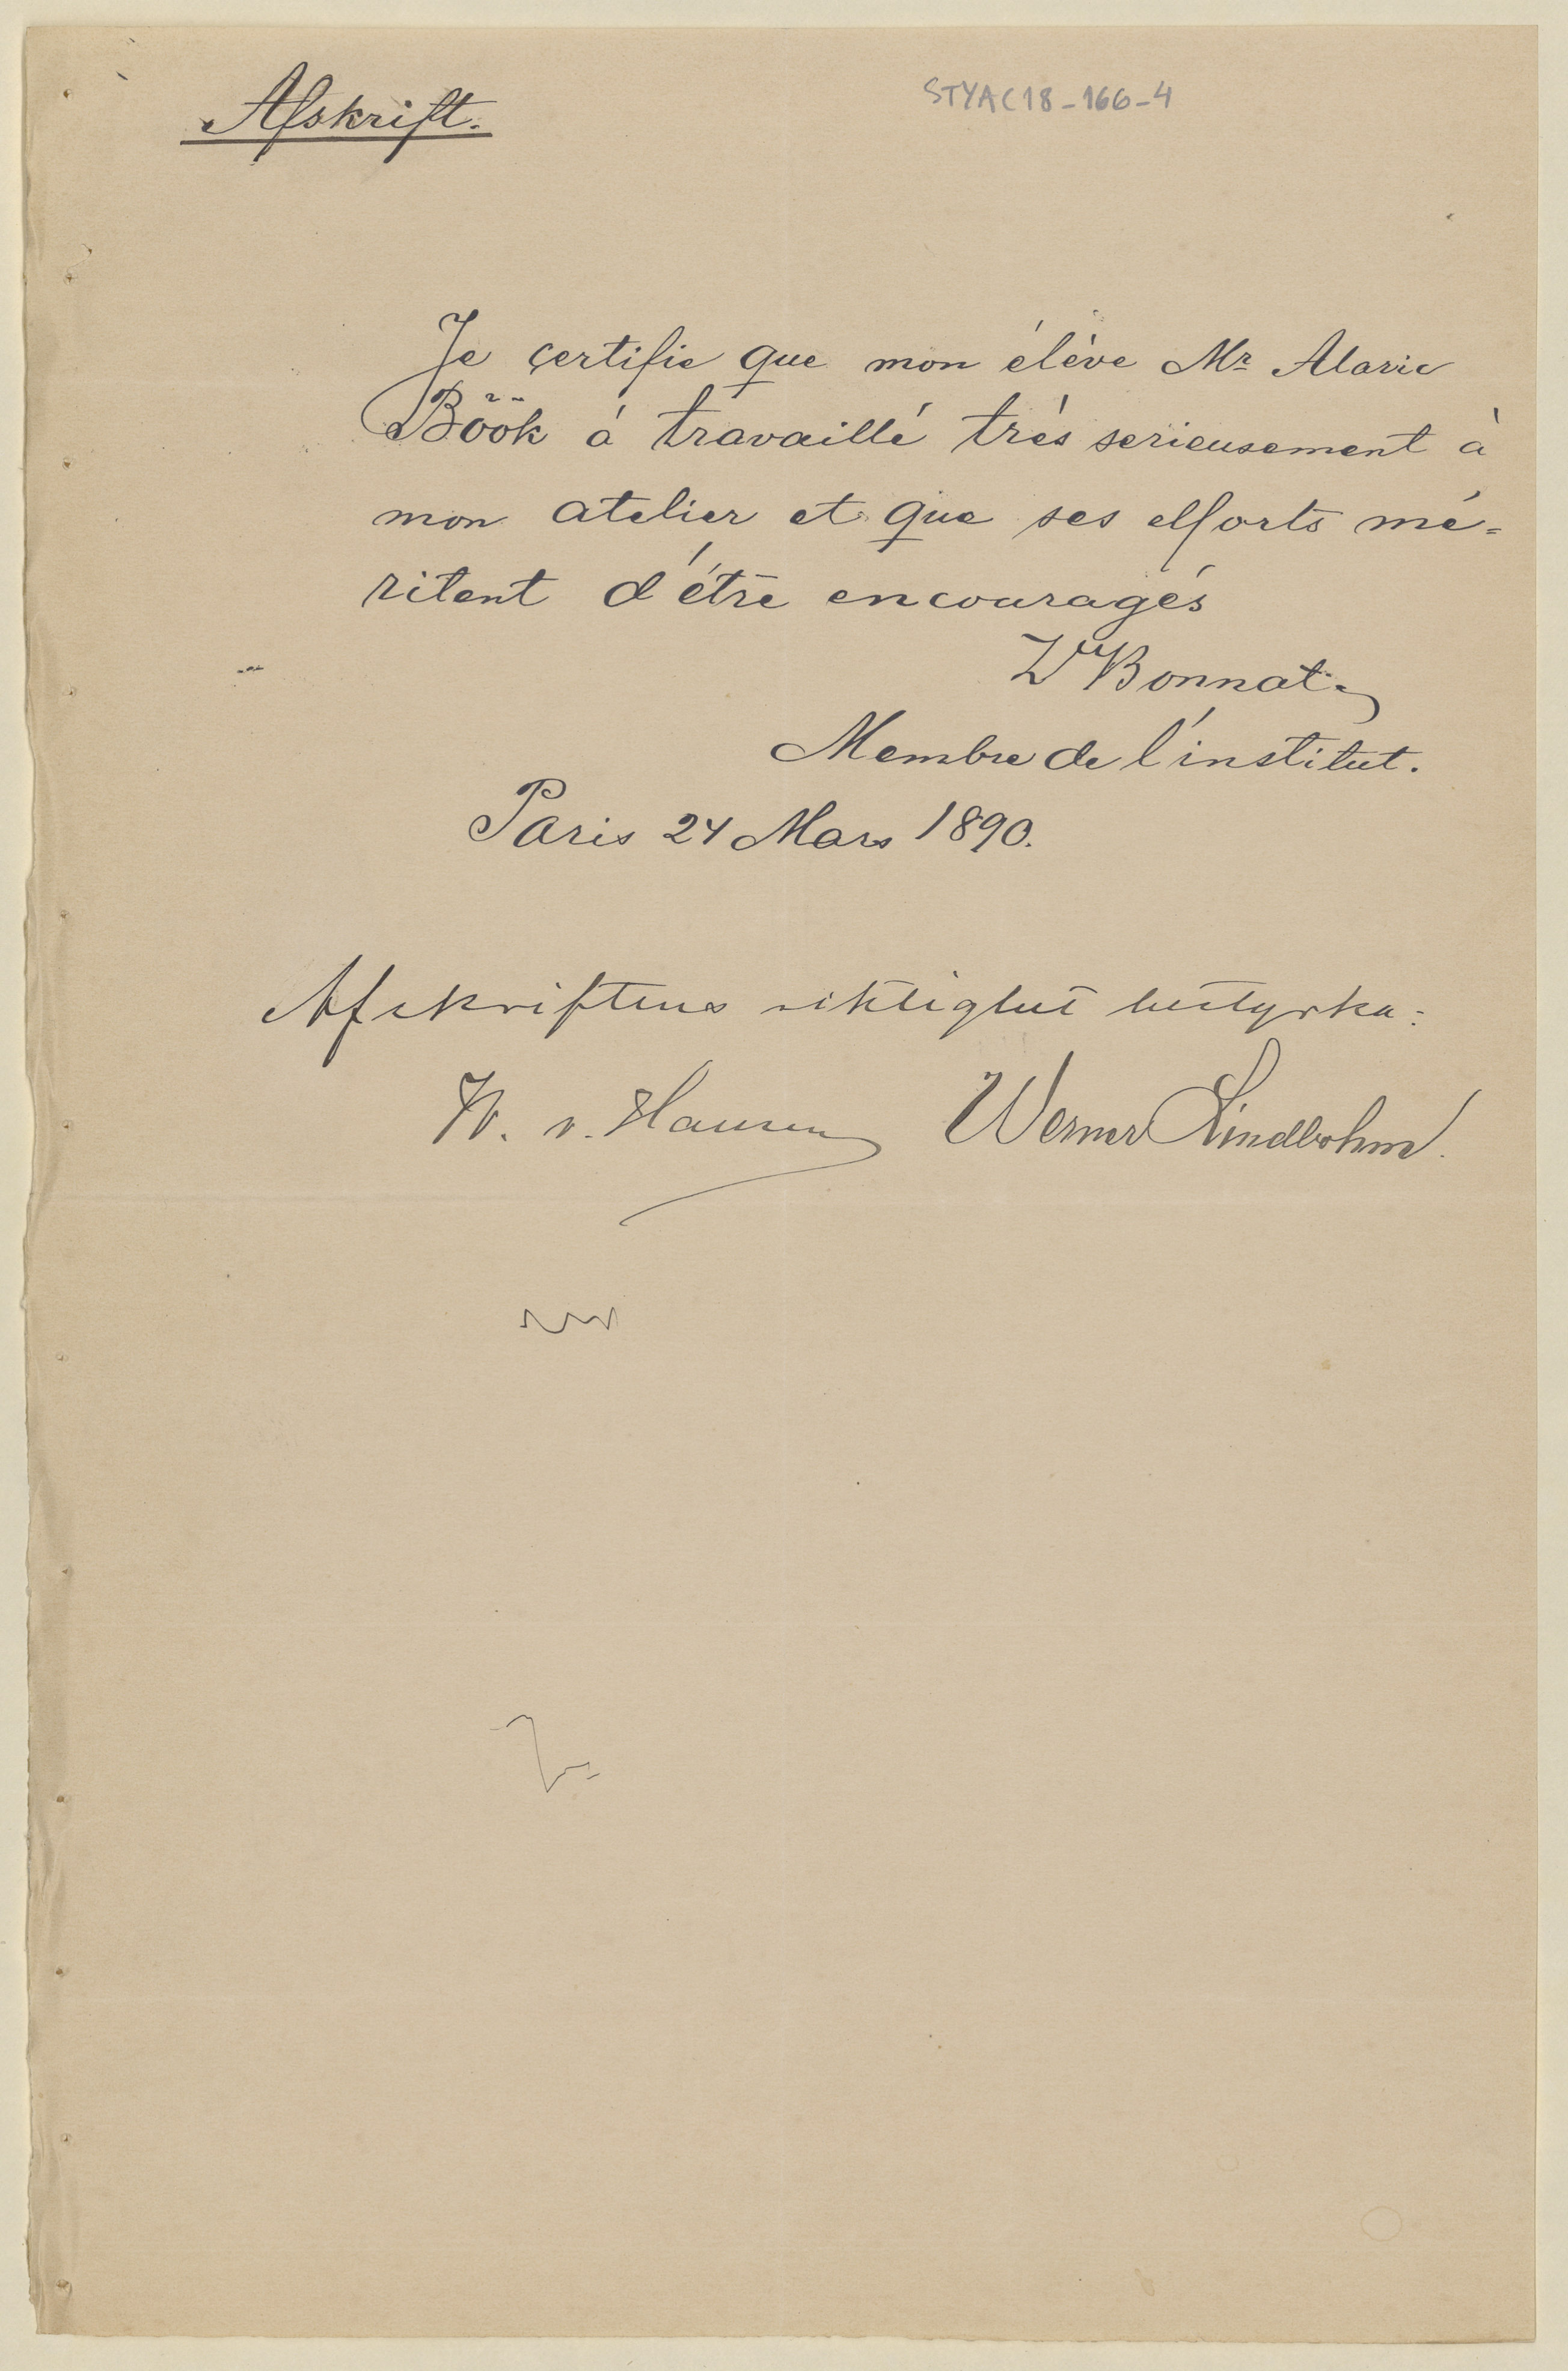 Afskrift.
STYAC18-166-4
Je çertifie que mon élève Mr Alaric
Böök á travaillé trés serieusement à
mon atelier et que ses efforts mé=
ritent d'étre encouragés
Ln Bonnat.
Membre de l'institut.
Paris 24 Mars 1890.
Afskriftens riktighet bestyrka:
W. v. Hausen Werner Lindbohm.